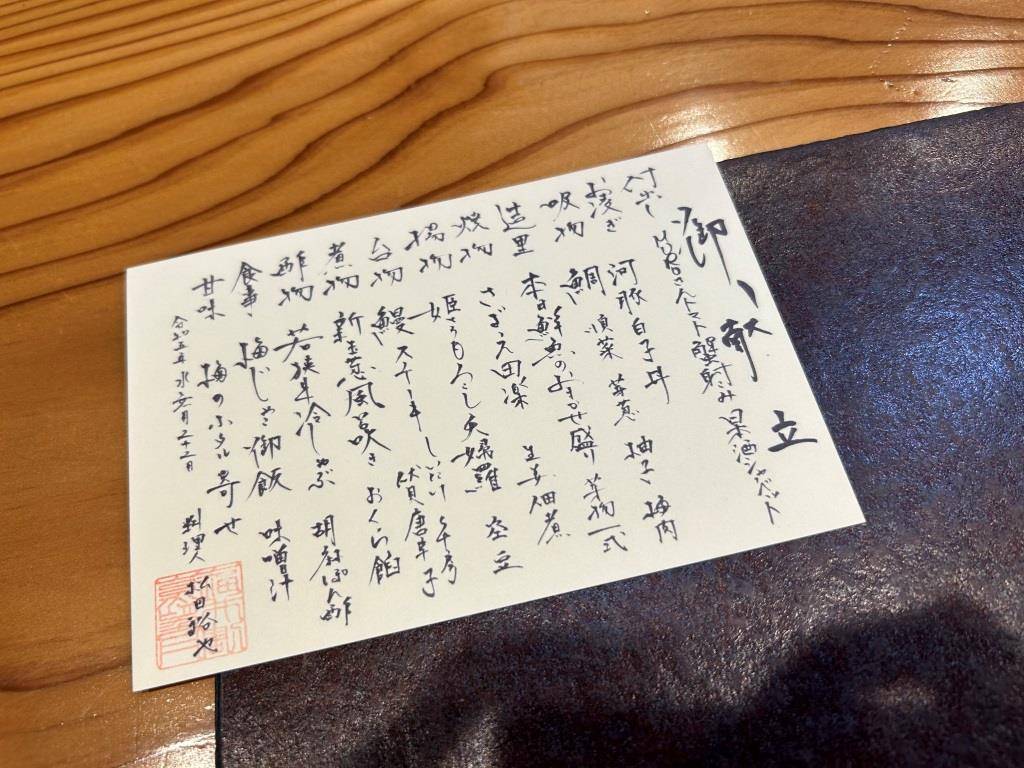 御献立
付出し ひめさざえトマト 蟹射込み 果酒シャーベット
お凌ぎ 河豚白子丼
吸物 鯛 順菜 芽葱 柚子 梅肉
造里 本日鮮魚のおまかせ盛り 芽物一式
焼物 さざえ田楽 生姜佃煮
揚物 姫とうもろこし天婦羅 空豆
台物 鰻ステーキ しいたけ 伏見唐辛子
煮物 新玉葱風炊き おくら餡
酢物 若狭牛冷しゃぶ 胡麻ぽん酢
食事 梅じゃこ御飯 味噌汁
甘味 梅のふるふる寄せ
令和五年 水無月二十二日
料理人 松田裕也